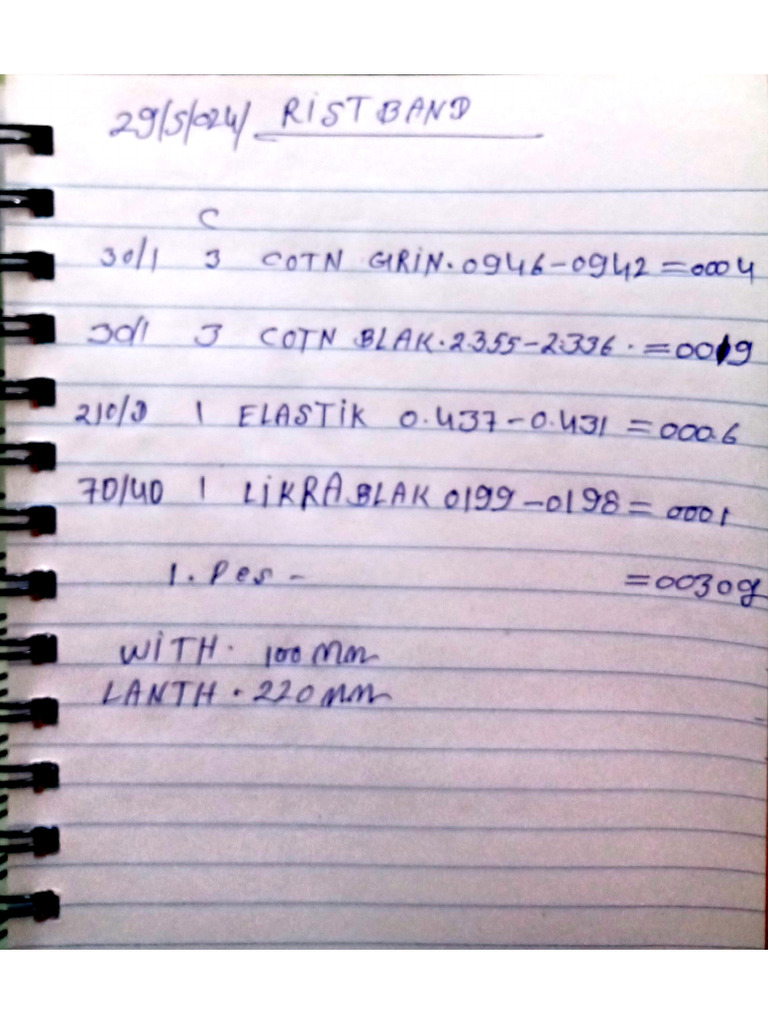 29/5/024/ RISTBAND
C
30/1 3 COTN GRIN. 0946-0942 = 0004
30/1 3 COTN BLAK. 2355-2336. = 0019
210/2 1 ELASTIK 0.437-0.431 = 000.6
70/40 1 LIKRA BLAK 0199-0198 = 0001
1. Pes - = 0030g
WITH. 100 mm
LANTH. 220 mm